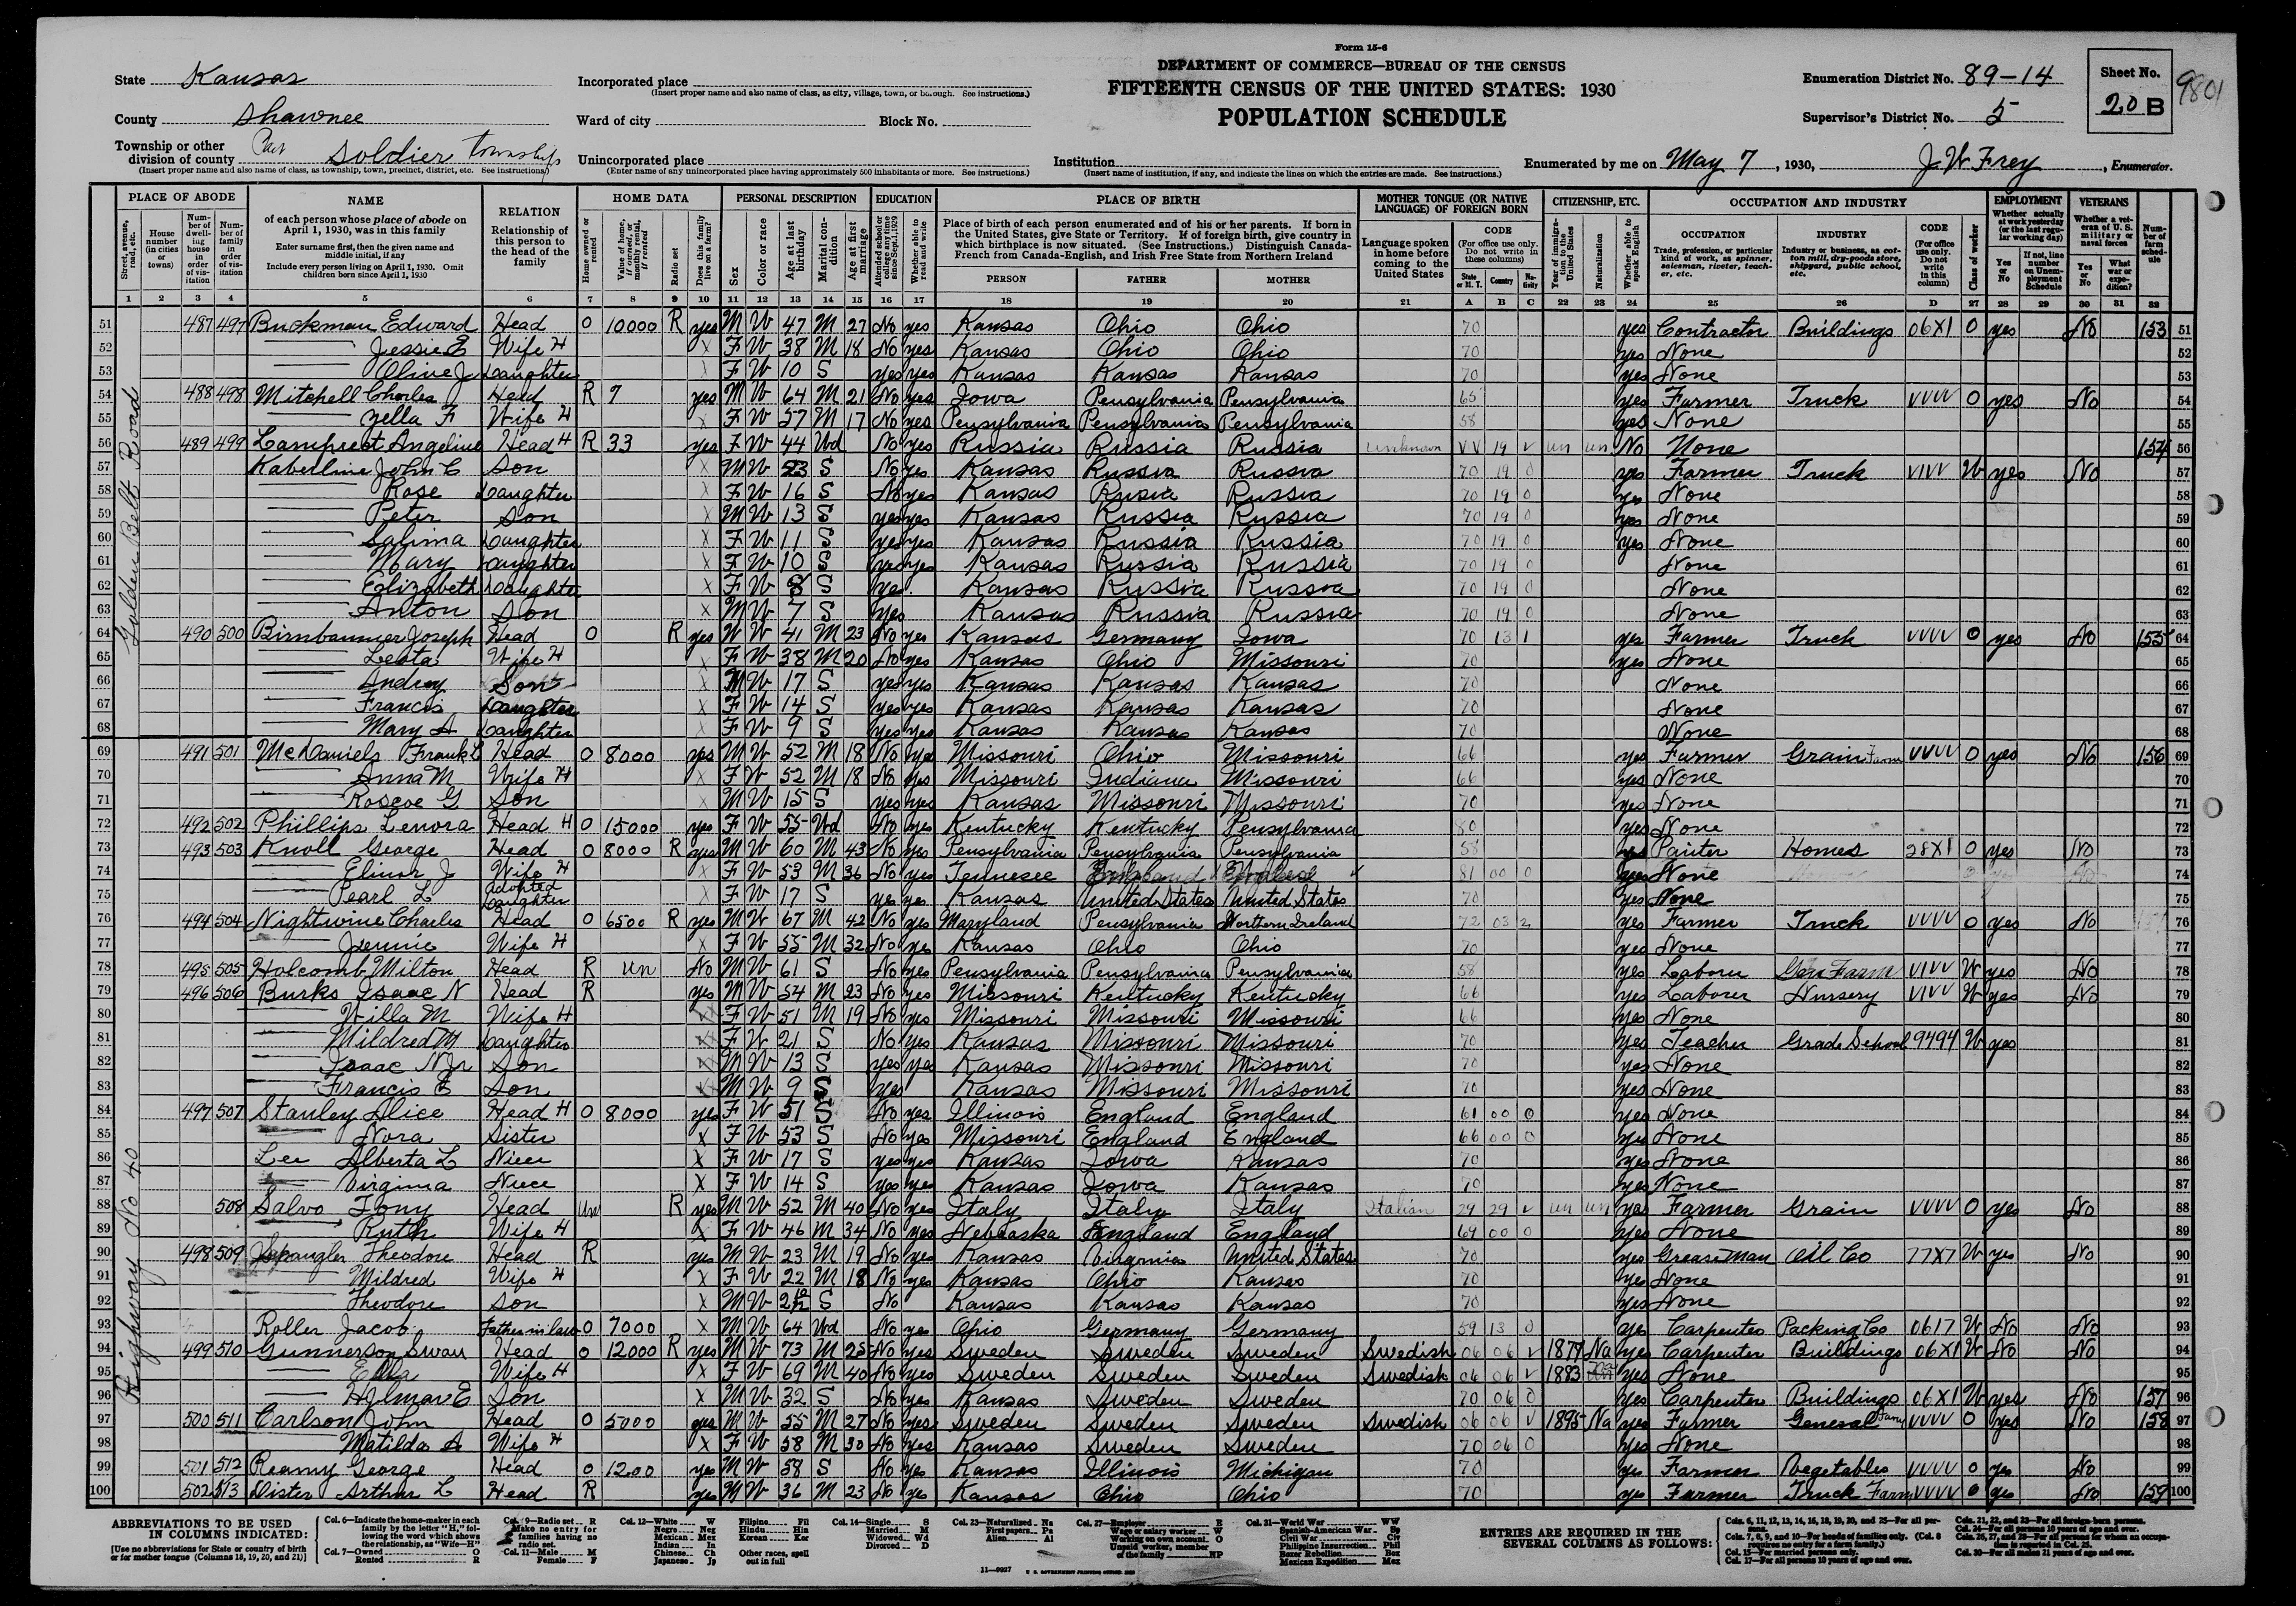 Form 15-6
DEPARTMENT OF COMMERCE—BUREAU OF THE CENSUS
FIFTEENTH CENSUS OF THE UNITED STATES: 1930
POPULATION SCHEDULE
State Kansas
County Shawnee
Township or other division of county Soldier Township
(Insert proper name and also name of class, as township, town, precinct, district, etc. See instructions.)
Incorporated place
(Insert proper name and also name of class, as city, village, town, or borough. See instructions.)
Ward of city Block No.
Unincorporated place
(Enter name of any unincorporated place having approximately 500 inhabitants or more. See instructions.)
Institution
(Insert name of institution, if any, and indicate the lines on which the entries are made. See instructions.)
Enumeration District No. 89-14
Supervisor's District No. 5
Sheet No. 20 B
9801
Enumerated by me on May 7, 1930, J W Frey, Enumerator.
PLACE OF ABODE NAME RELATION HOME DATA PERSONAL DESCRIPTION EDUCATION PLACE OF BIRTH MOTHER TONGUE (OR NATIVE LANGUAGE) OF FOREIGN BORN CITIZENSHIP, ETC. OCCUPATION AND INDUSTRY EMPLOYMENT VETERANS
PERSON FATHER MOTHER
Golden Belt Road
Highway No 40
51 487 497 Buckman Edward Head O 10000 R yes M W 47 M 27 No yes Kansas Ohio Ohio 70 yes Contractor Buildings 06X1 O yes No 153 51
52 Jessie E Wife H X F W 38 M 18 No yes Kansas Ohio Ohio 70 yes None 52
53 Olive J Daughter X F W 10 S yes yes Kansas Kansas Kansas 70 yes None 53
54 488 498 Mitchell Charles Head R 7 yes M W 64 M 21 No yes Iowa Pensylvania Pensylvania 65 yes Farmer Truck VVVV O yes No 54
55 Zella F Wife H X F W 57 M 17 No yes Pensylvania Pensylvania Pensylvania 58 yes None 55
56 489 499 Angeline Head H R 33 yes F W 44 Wd No yes Russia Russia Russia unknown VV 19 V un un No None 154 56
57 Kaberline John C Son X M W 23 S No yes Kansas Russia Russia 70 19 0 yes Farmer Truck VIVV W yes No 57
58 Rose Daughter X F W 16 S No yes Kansas Rusia Russia 70 19 0 yes None 58
59 Peter Son X M W 13 S yes yes Kansas Russia Russia 70 19 0 yes None 59
60 Salima Daughter X F W 11 S yes yes Kansas Russia Russia 70 19 0 yes None 60
61 Mary Daughter X F W 10 S yes yes Kansas Russia Russia 70 19 0 None 61
62 Elizabeth Daughter X F W 8 S yes Kansas Russia Russia 70 19 0 None 62
63 Anton Son X M W 7 S yes Kansas Russia Russia 70 19 0 None 63
64 490 500 Joseph Head O R yes W 41 M 23 No yes Kansas Germany Iowa 70 13 1 yes Farmer Truck VVVV O yes No 155 64
65 Leota Wife H X F W 38 M 20 No yes Kansas Ohio Missouri 70 yes None 65
66 Son X M W 17 S yes yes Kansas Kansas Kansas 70 None 66
67 Francis Daughter X F W 14 S yes yes Kansas Kansas Kansas 70 None 67
68 Mary A Daughter X F W 9 S yes yes Kansas Kansas Kansas 70 None 68
69 491 501 McDaniels Frank L Head O 8000 yes M W 52 M 18 No yes Missouri Ohio Missouri 66 yes Farmer Grain Farm VVVV O yes No 156 69
70 Anna M Wife H X F W 52 M 18 No yes Missouri Indiana Missouri 66 yes None 70
71 Roscoe G Son X M W 15 S yes yes Kansas Missouri Missouri 70 yes None 71
72 492 502 Phillips Lenora Head H O 15000 yes F W 55 Wd No yes Kentucky Kentucky Pensylvania 80 yes None 72
73 493 503 Knoll George Head O 8000 R yes M W 60 M 43 No yes Pensylvania Pensylvania Pensylvania 58 yes Painter Homes 28X1 O yes No 73
74 Elinor J Wife H X F W 53 M 36 No yes Tennesee England England 81 00 0 yes None 74
75 Pearl L Adopted Daughter X F W 17 S yes yes Kansas United States United States 70 yes None 75
76 494 504 Nightwine Charles Head O 6500 R yes M W 67 M 42 No yes Maryland Pensylvania Northern Ireland 72 03 2 yes Farmer Truck VVVV O yes No 76
77 Jennie Wife H X F W 55 M 32 No yes Kansas Ohio Ohio 70 yes None 77
78 495 505 Holcomb Milton Head R un No M W 61 S No yes Pensylvania Pensylvania Pensylvania 58 yes Laborer Gen Farm VIVV W yes No 78
79 496 506 Burks Isaac N Head R yes M W 54 M 23 No yes Missouri Kentucky Kentucky 66 yes Laborer Nursery VIVV W yes No 79
80 Willa M Wife H F W 51 M 19 No yes Missouri Missouri Missouri 66 yes None 80
81 Mildred M Daughter F W 21 S No yes Kansas Missouri Missouri 70 yes Teacher Grade School 9494 W yes 81
82 Isaac N Jr Son M W 13 S yes yes Kansas Missouri Missouri 70 yes None 82
83 Francis E Son M W 9 S yes Kansas Missouri Missouri 70 yes None 83
84 497 507 Stanley Alice Head H O 8000 yes F W 51 S No yes Illinois England England 61 00 0 yes None 84
85 Nora Sister X F W 53 S No yes Missouri England England 66 00 0 yes None 85
86 Lee Alberta L Niece X F W 17 S yes yes Kansas Iowa Kansas 70 yes None 86
87 Virginia Niece X F W 14 S yes yes Kansas Iowa Kansas 70 yes None 87
88 508 Salvo Tony Head un R yes M W 52 M 40 No yes Italy Italy Italy Italian 29 29 V un un yes Farmer Grain VVVV O yes No 88
89 Ruth Wife H X F W 46 M 34 No yes Nebraska England England 69 00 0 yes None 89
90 498 509 Spangler Theodore Head R yes M W 23 M 19 No yes Kansas Virginia United States 70 yes Grease Man Oil Co 77X7 W yes No 90
91 Mildred Wife H X F W 22 M 18 No yes Kansas Ohio Kansas 70 yes None 91
92 Theodore Son X M W S No Kansas Kansas Kansas 70 yes None 92
93 Roller Jacob Father in law O 7000 X M W 64 Wd No yes Ohio Germany Germany 59 13 0 yes Carpenter Packing Co 0617 W No No 93
94 499 510 Gunnerson Swan Head O 12000 R yes M W 73 M 25 No yes Sweden Sweden Sweden Swedish 06 06 V Na yes Carpenter Buildings 06X1 W No No 94
95 Ella Wife H X F W 69 M 40 No yes Sweden Sweden Sweden Swedish 06 06 V 1883 yes None 95
96 Hjlmar E Son X M W 32 S No yes Kansas Sweden Sweden 70 06 0 yes Carpenter Buildings 06X1 W yes No 157 96
97 500 511 Carlson John Head O 5000 yes M W 55 M 27 No yes Sweden Sweden Sweden Swedish 06 06 V 1895 Na yes Farmer General Farm VVVV O yes No 158 97
98 Matilda A Wife H X F W 58 M 30 No yes Kansas Sweden Sweden 70 06 0 yes None 98
99 501 512 Reamy George Head O 1200 yes M W 58 S No yes Kansas Illinois Michigan 70 yes Farmer Vegetables VVVV O yes No 99
100 502 513 Dister Arthur L Head R yes M W 36 M 23 No yes Kansas Ohio Ohio 70 yes Farmer Truck Farm VVVV O yes No 159 100
ABBREVIATIONS TO BE USED IN COLUMNS INDICATED:
[Use no abbreviations for State or country of birth or for mother tongue (Columns 18, 19, 20, and 21)]
ENTRIES ARE REQUIRED IN THE SEVERAL COLUMNS AS FOLLOWS:
11—9927